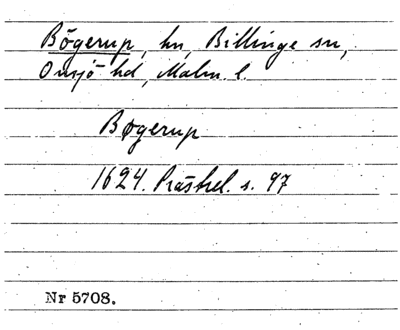 Bögerup, hn, Billinge sn,
Onsjö hd, Malm. l.
Bøgerup
1624. Prästrel. s. 97
Nr 5708.